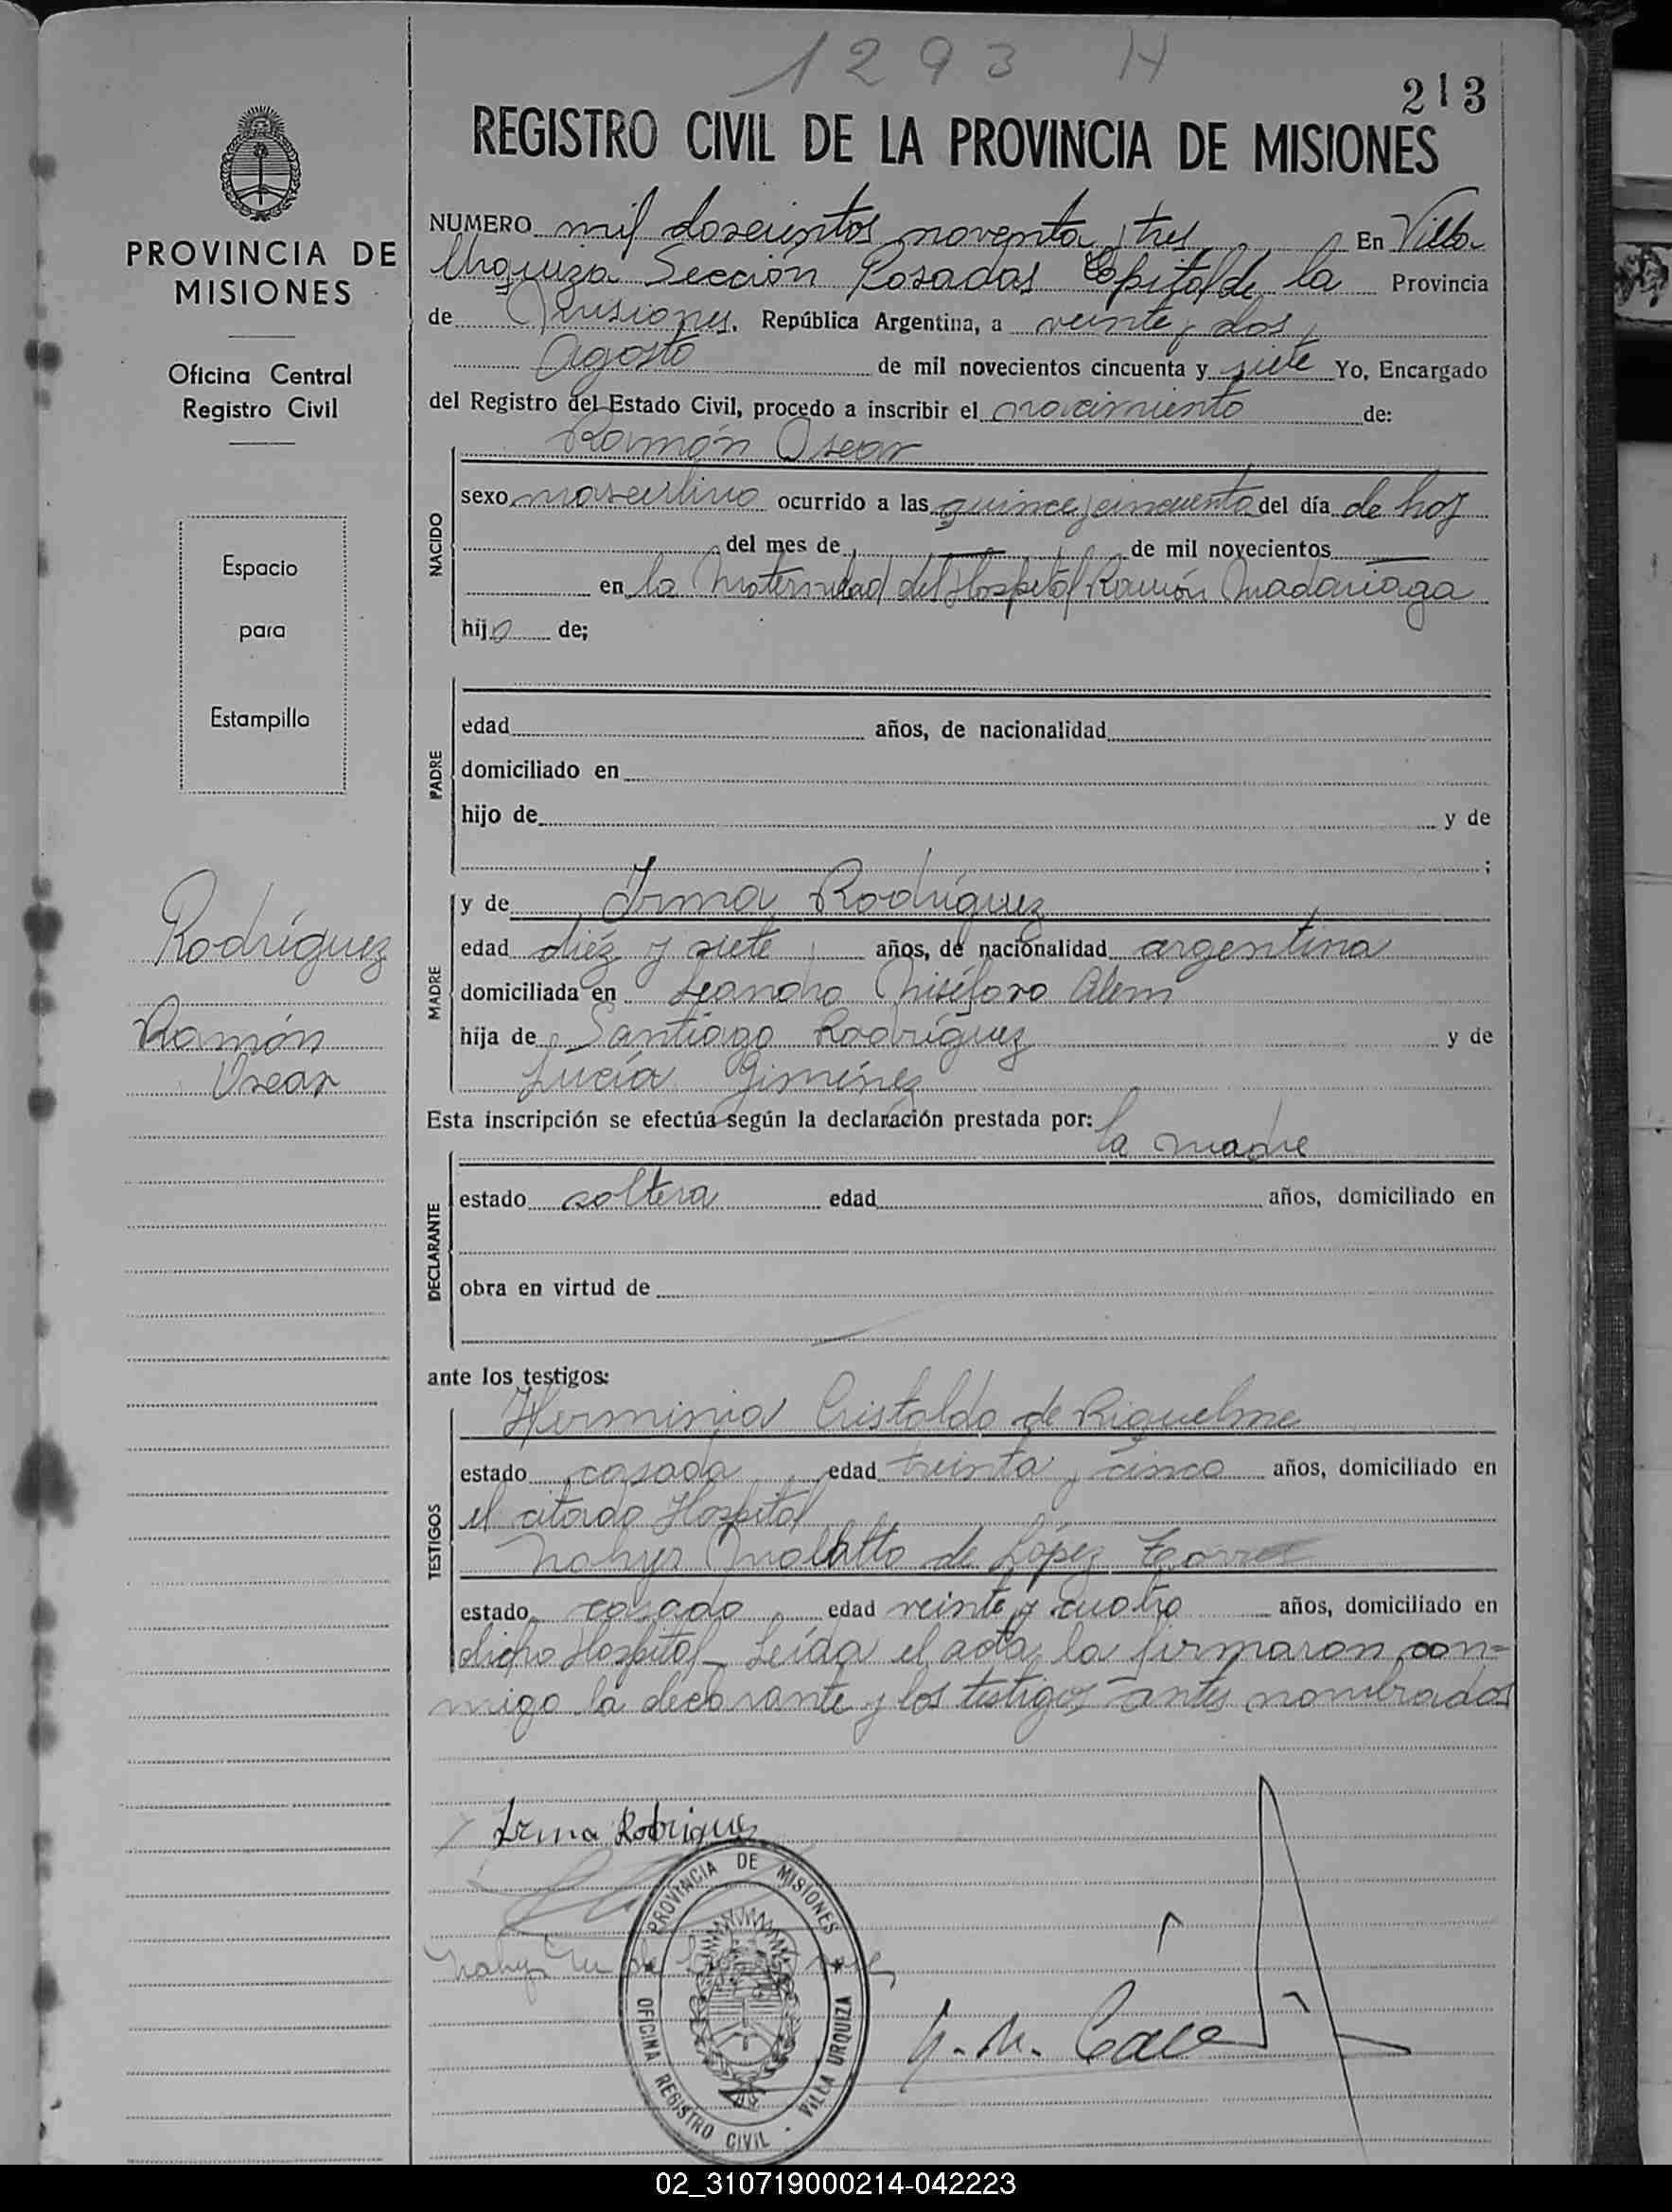 1293 H
213
REGISTRO CIVIL DE LA PROVINCIA DE MISIONES
PROVINCIA DE
MISIONES
Oficina Central
Registro Civil
Espacio
para
Estampilla
Rodríguez
Ramón
Oscar
NUMERO mil doscientos noventa y tres En Villa
Urquiza Sección Posadas Capital de la Provincia
de Misiones. República Argentina, a veinte y dos
Agosto de mil novecientos cincuenta y siete Yo, Encargado
del Registro del Estado Civil, procedo a inscribir el nacimiento de:
NACIDO
Ramón Oscar
sexo masculino ocurrido a las quince y cincuenta del día de hoy
del mes de de mil novecientos
en la Maternidad del Hospital Ramón Madariaga
hijo de;
PADRE
edad años, de nacionalidad
domiciliado en
hijo de y de
;
MADRE
y de Irma Rodríguez
edad diéz y siete años, de nacionalidad argentina
domiciliada en Leandro Nicéforo Alem
hija de Santiago Rodríguez y de
Lucía Giménez
Esta inscripción se efectúa según la declaración prestada por:
la madre
DECLARANTE
estado soltera edad años, domiciliado en
obra en virtud de
ante los testigos:
TESTIGOS
Herminia Cristaldo de Riquelme
estado casada edad treinta y cinco años, domiciliado en
el citado Hospital
de López
estado casado edad veinte y cuatro años, domiciliado en
dicho Hospital_ Leída el acta, la firmaron con=
migo la declarante y los testigos antes nombrados
Irma Rodriguez
PROVINCIA DE MISIONES
OFICINA REGISTRO CIVIL - VILLA URQUIZA
02_310719000214-042223